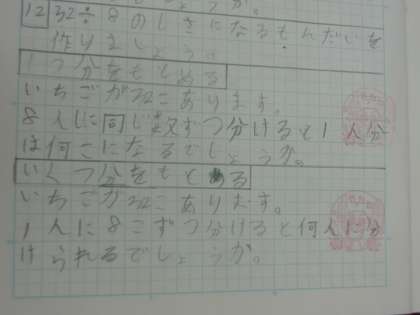 12 32÷8のしきになるもんだいを
作りましょう。
1つ分をもとめる
いちごが32こあります。
8人に同じ数ずつ分けると1人分
は何こになるでしょうか。
いくつ分をもとめる
いちごが32こあります。
1人に8こずつ分けると何人に分
けられるでしょうか。